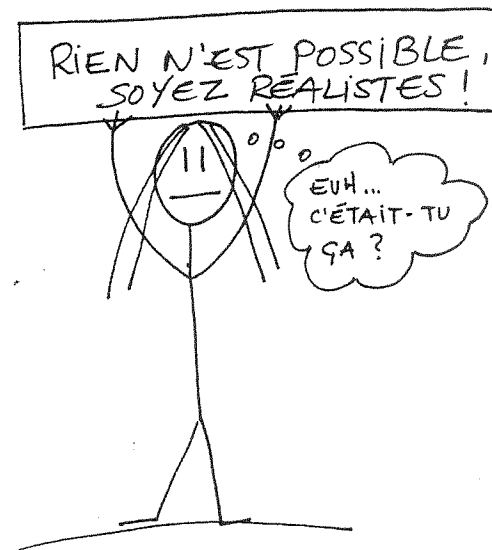 RIEN N'EST POSSIBLE,
SOYEZ RÉALISTES !
EUH...
C'ÉTAIT-TU
ÇA ?